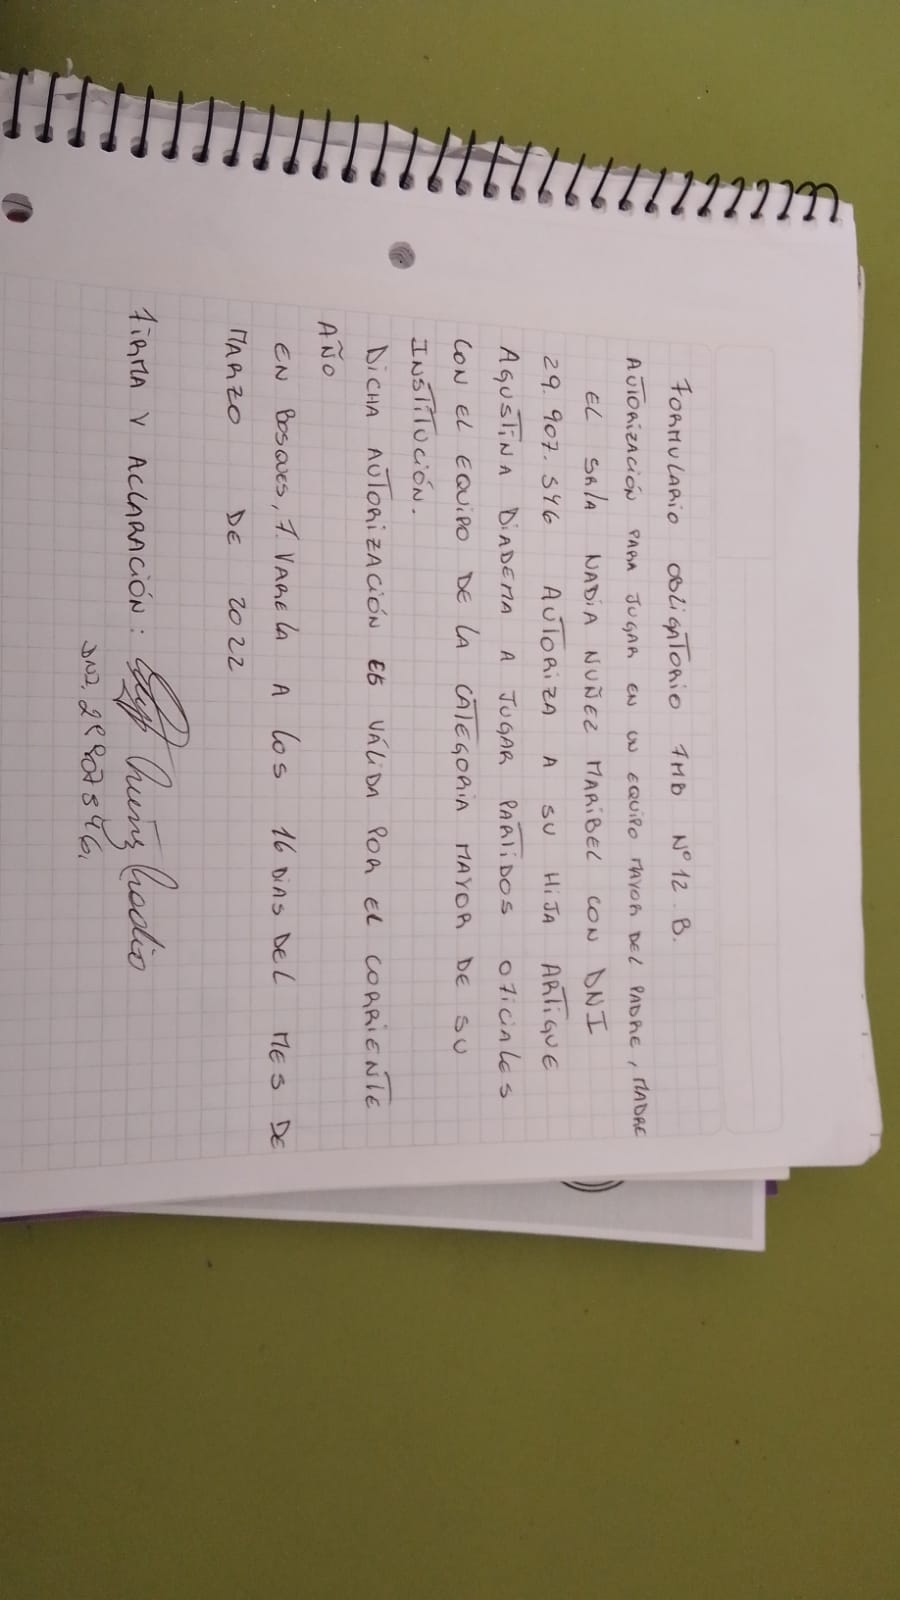 FORMULARIO OBLIGATORIO FMB Nº 12. B.
AUTORIZACIÓN PARA JUGAR EN UN EQUIPO MAYOR DEL PADRE, MADRE
EL SR/A NADIA NUÑEZ MARIBEL CON DNI
29.907.546 AUTORIZA A SU HIJA ARTIGUE
AGUSTINA DIADEMA A JUGAR PARTIDOS OFICIALES
CON EL EQUIPO DE LA CATEGORIA MAYOR DE SU
INSTITUCIÓN.
DICHA AUTORIZACIÓN ES VÁLIDA POR EL CORRIENTE
AÑO
EN BOSQUES, F. VARELA A LOS 16 DIAS DEL MES DE
MARZO DE 2022
FIRMA Y ACLARACIÓN: Nuñez Nadia
DNI. 29907546.